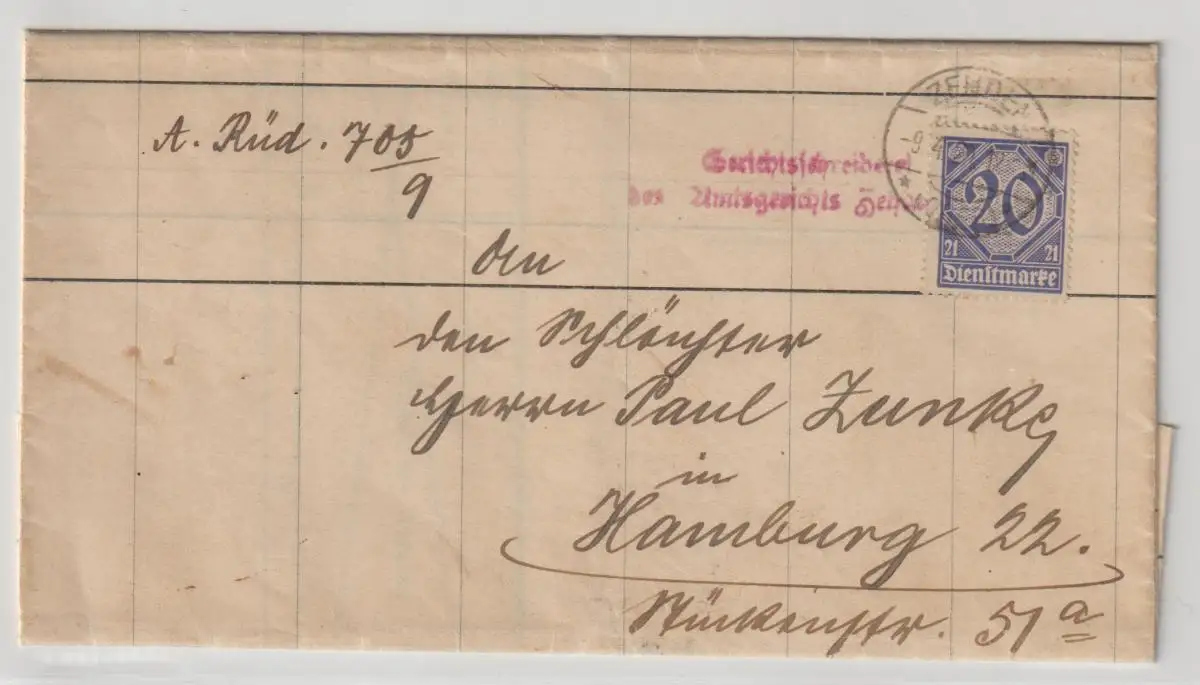 A. Rüd. 705/9
Gerichtsschreiberei
des Amtsgerichts
ZEHDEN
20
21 21
Dienstmarke
An
den Schlächter
Herrn Paul Zunke
in
Hamburg 22.
Stückenstr. 51a